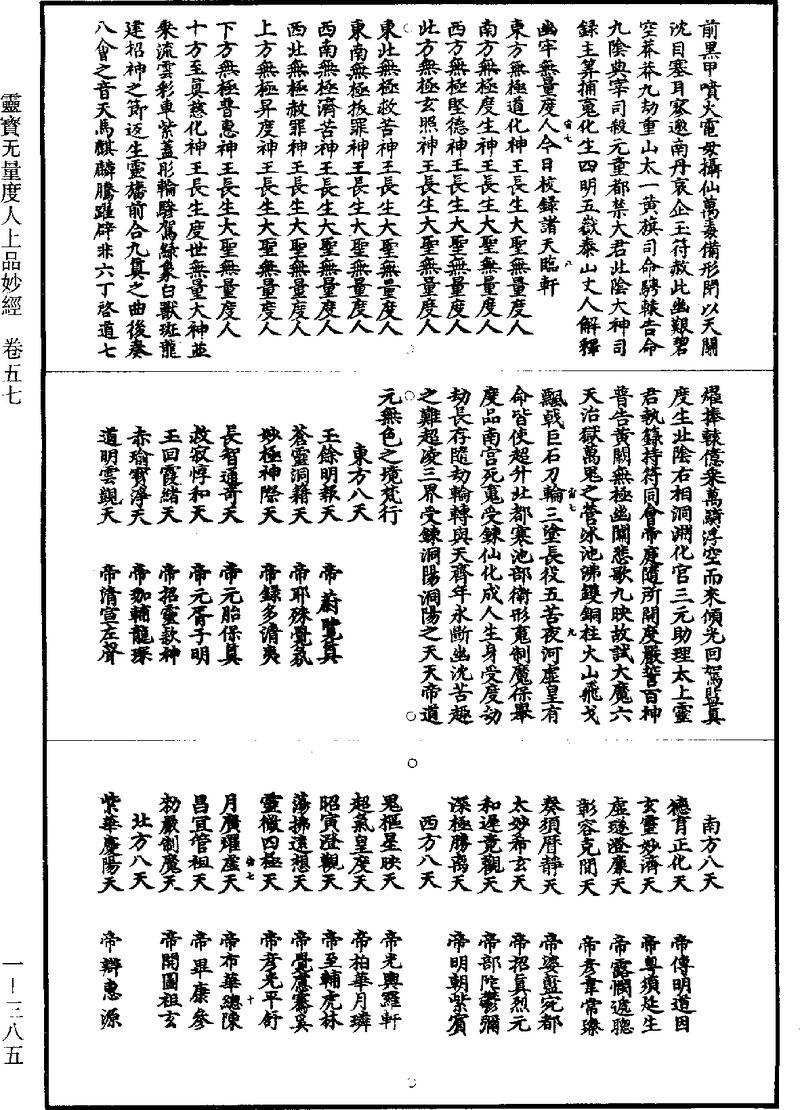 靈寶无量度人上品妙經 卷五七
一—三八五
前黑甲噴火電母攝仙萬毒備形閉以天關
沈目塞耳寥邈南丹哀企玉符赦此幽艱碧
空莽莽九劫重山太一黃旗司命騁轅告命
九陰典宰司殺元童都禁大君北陰大神司
錄主筭捕䰟化生四明五嶽泰山丈人解釋
幽牢無量度人今日校錄諸天臨軒
東方無極道化神王長生大聖無量度人
南方無極度生神王長生大聖無量度人
西方無極堅德神王長生大聖無量度人
北方無極玄照神王長生大聖無量度人
東北無極救苦神王長生大聖無量度人
東南無極拔罪神王長生大聖無量度人
西南無極濟苦神王長生大聖無量度人
西北無極赦罪神王長生大聖無量度人
上方無極昇度神王長生大聖無量度人
下方無極普惠神王長生大聖無量度人
十方至真慈化神王長生度世無量大神並
乘流雲彩車紫蓋彤輪驂駕綠象白獸斑龍
建招神之節返生靈旛前合九真之曲後奏
八會之音天馬麒麟騰躍辟非六丁啓道七
燿捧轅億乘萬騎浮空而來傾光回駕監真
度生北陰右相洞淵化宮三元助理太上靈
君執錄持符同會帝庭隨所開度嚴誓百神
普告黃闕無極幽關悲歌九映故試大魔六
天治獄萬鬼之營冰池沸鑊銅柱火山飛戈
飄戟巨石刀輪三塗長役五苦夜河虛皇有
命皆使超升北都寒池部衛形䰟制魔保舉
度品南宮死䰟受鍊仙化成人生身受度劫
劫長存隨劫輪轉與天齊年永斷幽沈苦趣
之難超凌三界受鍊洞陽洞陽之天天帝道
元無色之境梵行
東方八天
玉餘明報天 帝蔚覽真
蒼靈洞籍天 帝耶殊覺氛
妙極神際天 帝錄多清夷
長智通奇天 帝元胎保真
救寂惇和天 帝元胥子明
玉回霞緒天 帝招靈款神
赤瑜寶淨天 帝珈輔龍琛
道明雲覲天 帝清宣左聲
南方八天
德育正化天 帝傳明道因
玄靈妙濟天 帝粵須延生
虛璲澄廉天 帝露憫遞聰
彰容克閒天 帝彥韋常璨
奏須厚靜天 帝姿藍宛都
太妙希玄天 帝招真烈元
和遲竟觀天 帝部陀鬱彌
深極勝离天 帝明朝紫賓
西方八天
鬼樞星映天 帝光輿羅軒
超氣皇度天 帝柏華月璘
昭寅澄觀天 帝至輔虎林
蕩拂遠想天 帝覺應騫奚
靈微四極天 帝彥光平舒
月廣躍虛天 帝布華總陳
昌宜管祖天 帝畢康參
初嚴制魔天 帝開圖祖玄
北方八天
紫華慶陽天 帝辯惠源